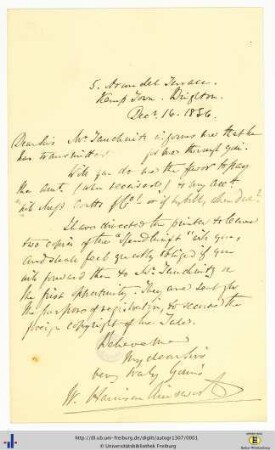 5. Arundel Terrace.
Kemp Town. Brighton.
Decr. 16. 1856.
Dear Sir Mr. Tauchnitz informs me that he
has transmitted through you.
Will you do me the favor to pay
the amt. (when received) to my acct.
with
I have directed the printer to leave
two copies of the "Spendthrift" with you,
and shall feel greatly obliged if you
will forward them to Mr. Tauchnitz by
the first opportunity. They are sent for
the purpose of registration, to secure the
foreign copyright of the Tale.
Believe me
My dear Sir
very truly Yours
W. Harrison Ainsworth
http://dl.ub.uni-freiburg.de/diglit/autogr1397/0001
© Universitätsbibliothek Freiburg